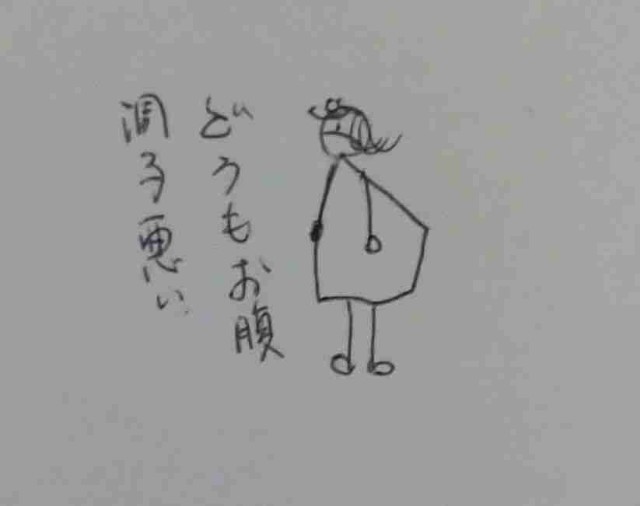 どうもお腹
調子悪い